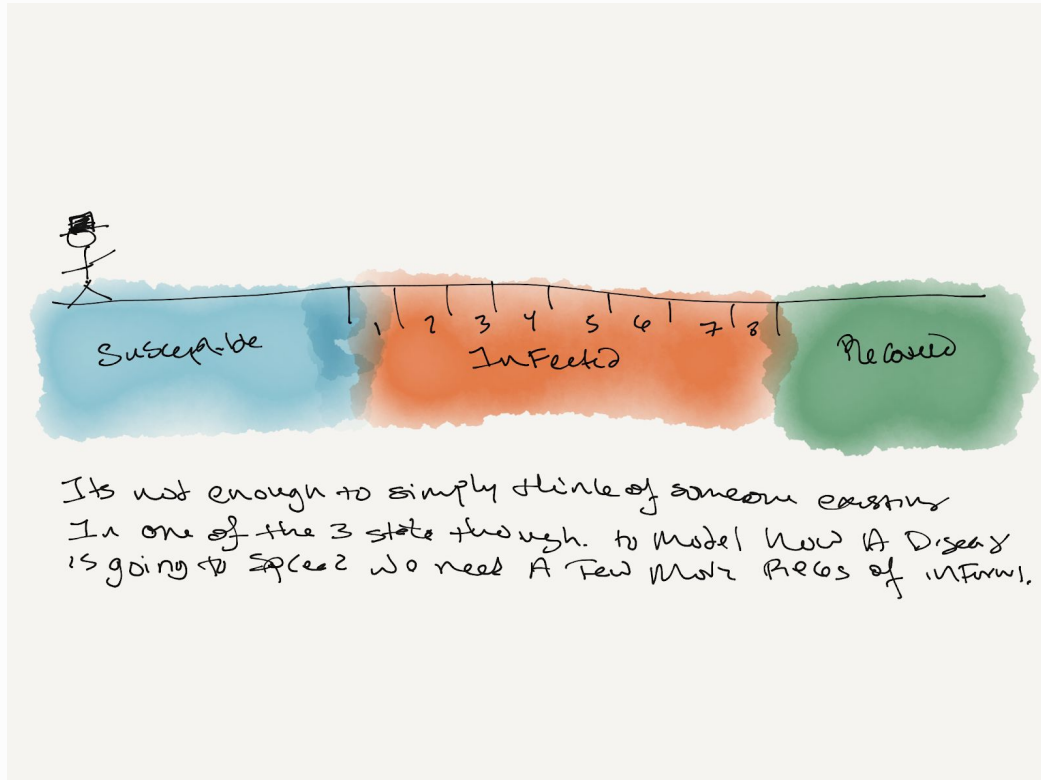 Susceptible 1 2 3 4 5 6 7 8 Infected Recovered
Its not enough to simply think of someone existing
In one of the 3 state though. to Model How A Disease
is going to Spread we need A Few More Pieces of inform.